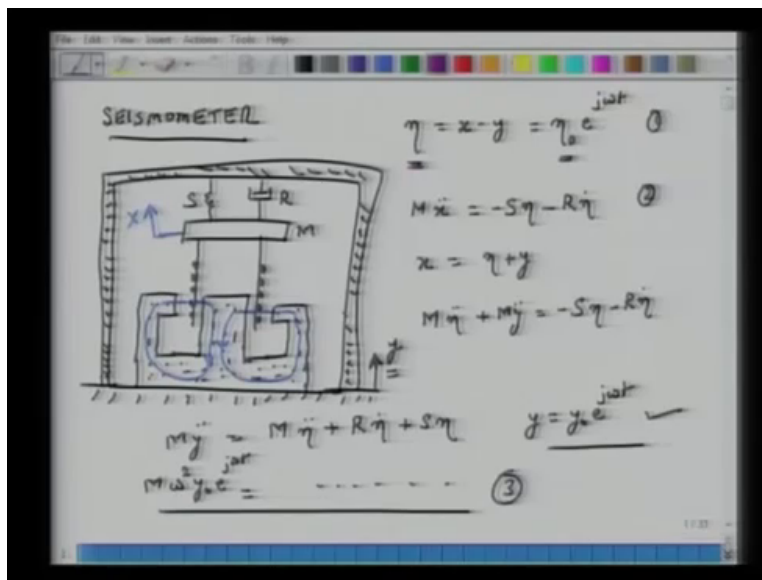 File Edit View Insert Actions Tools Help
SEISMOMETER
η = x - y = η₀ e^{jωt} ①
S R
X M
Mẍ = -Sη - Rη̇ ②
x = η + y
Mη̈ + Mÿ = -Sη - Rη̇
y
Mÿ = Mη̈ + Rη̇ + Sη
y = y₀ e^{jωt} ✓
Mω² y₀ e^{jωt} = - - - - - - - ③